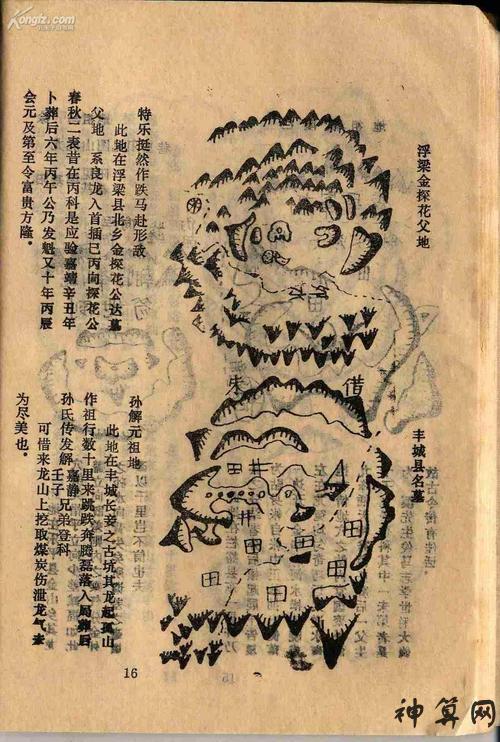 Kongfz.com
浮梁金探花父地
特乐挺然作跌马赴形敌
此地在浮梁县北乡金探花公达墓
父地 系良龙入首插巳丙向探花公
春秋二表昔在丙科是应验嘉靖辛丑年
卜葬后六年丙午公乃发魁又十年丙辰
会元及第至令富贵方隆。
丰城县名墓
借
朱
田
井
田
田
田
田
田
田
孙解元祖地
此地在丰城长妾之古坑其龙起孤山
作祖行数十里来跳跌奔腾磊落入局葬
孙氏传发解嘉静壬子兄弟登科
可惜来龙山上挖取煤炭伤泄龙气
为尽美也。
16
神算网